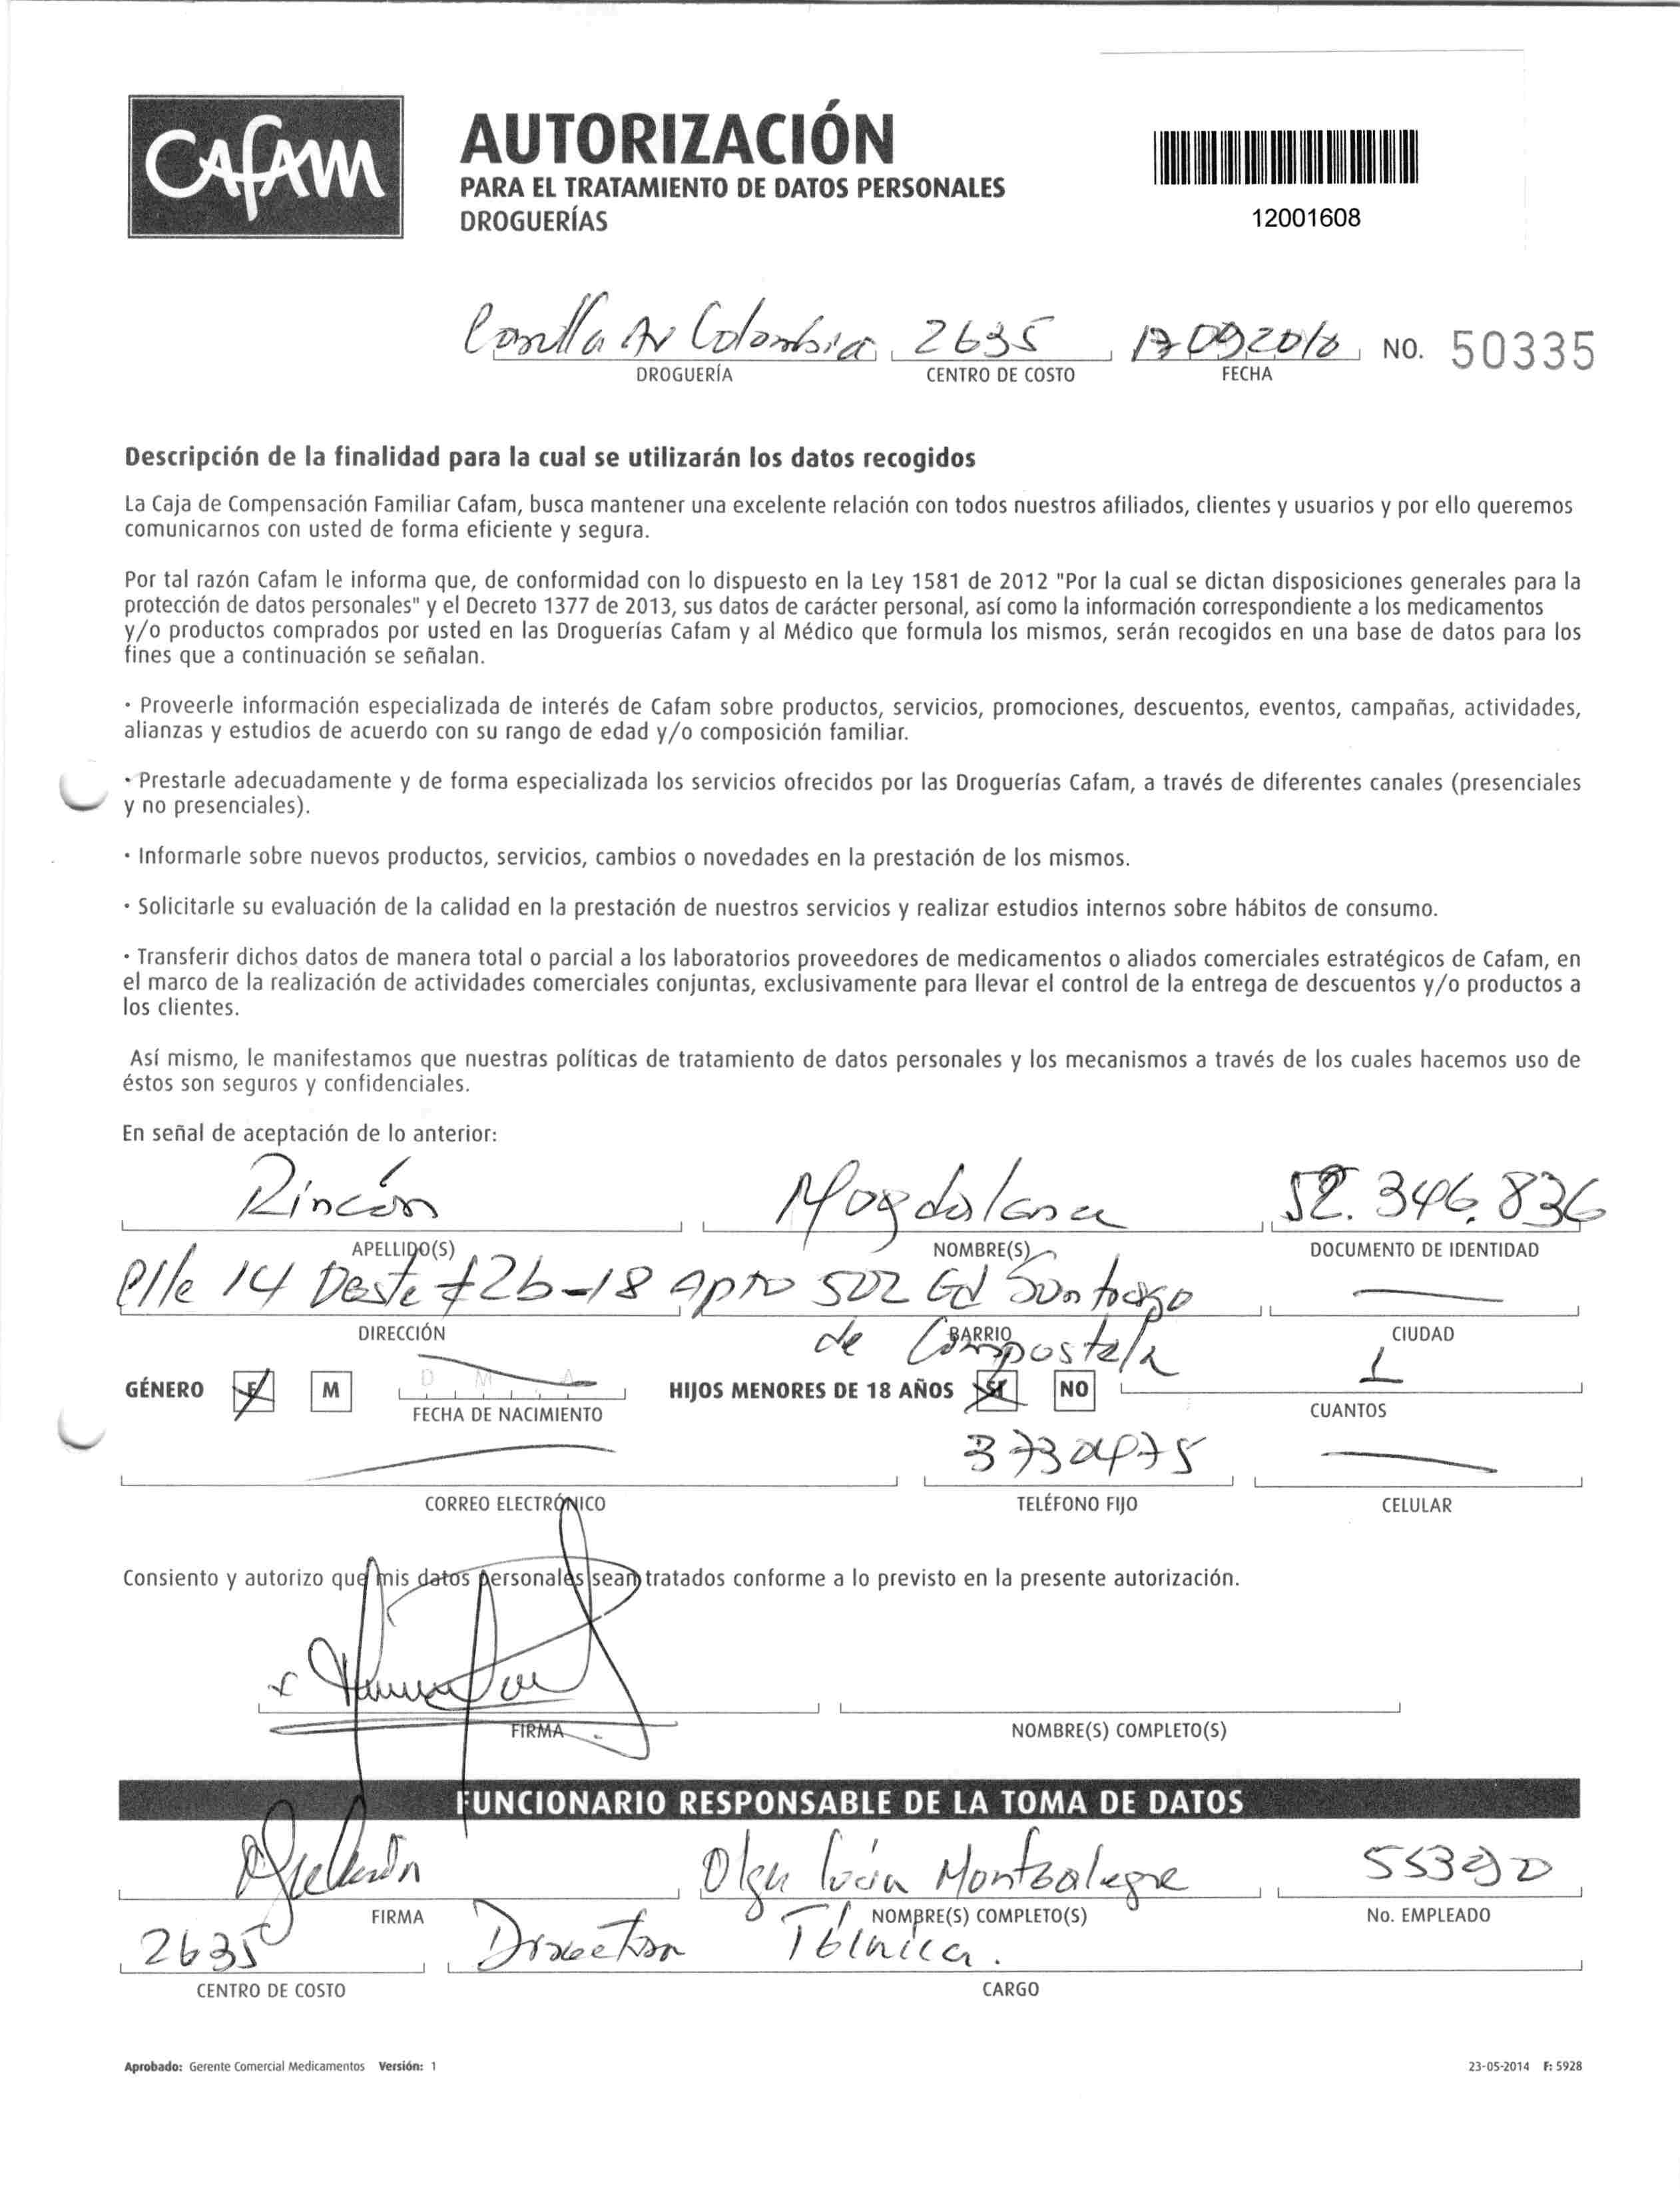 Cafam
AUTORIZACIÓN
PARA EL TRATAMIENTO DE DATOS PERSONALES
DROGUERÍAS
12001608
Av Colombia 2635 NO. 50335
DROGUERÍA CENTRO DE COSTO FECHA
Descripción de la finalidad para la cual se utilizarán los datos recogidos
La Caja de Compensación Familiar Cafam, busca mantener una excelente relación con todos nuestros afiliados, clientes y usuarios y por ello queremos
comunicarnos con usted de forma eficiente y segura.
Por tal razón Cafam le informa que, de conformidad con lo dispuesto en la Ley 1581 de 2012 "Por la cual se dictan disposiciones generales para la
protección de datos personales" y el Decreto 1377 de 2013, sus datos de carácter personal, así como la información correspondiente a los medicamentos
y/o productos comprados por usted en las Droguerías Cafam y al Médico que formula los mismos, serán recogidos en una base de datos para los
fines que a continuación se señalan.
· Proveerle información especializada de interés de Cafam sobre productos, servicios, promociones, descuentos, eventos, campañas, actividades,
alianzas y estudios de acuerdo con su rango de edad y/o composición familiar.
· Prestarle adecuadamente y de forma especializada los servicios ofrecidos por las Droguerías Cafam, a través de diferentes canales (presenciales
y no presenciales).
· Informarle sobre nuevos productos, servicios, cambios o novedades en la prestación de los mismos.
· Solicitarle su evaluación de la calidad en la prestación de nuestros servicios y realizar estudios internos sobre hábitos de consumo.
· Transferir dichos datos de manera total o parcial a los laboratorios proveedores de medicamentos o aliados comerciales estratégicos de Cafam, en
el marco de la realización de actividades comerciales conjuntas, exclusivamente para llevar el control de la entrega de descuentos y/o productos a
los clientes.
Así mismo, le manifestamos que nuestras políticas de tratamiento de datos personales y los mecanismos a través de los cuales hacemos uso de
éstos son seguros y confidenciales.
En señal de aceptación de lo anterior:
Rincón Magdalena 52.346.836
APELLIDO(S) NOMBRE(S) DOCUMENTO DE IDENTIDAD
Clle 14 Oeste #2b-18 Apto 502 Ed Santiago
DIRECCIÓN BARRIO CIUDAD
de Compostela 1
GÉNERO F M D M A HIJOS MENORES DE 18 AÑOS SI NO
FECHA DE NACIMIENTO CUANTOS
3730475
CORREO ELECTRÓNICO TELÉFONO FIJO CELULAR
Consiento y autorizo que mis datos personales sean tratados conforme a lo previsto en la presente autorización.
FIRMA NOMBRE(S) COMPLETO(S)
FUNCIONARIO RESPONSABLE DE LA TOMA DE DATOS
Olga Lucía Montealegre
FIRMA NOMBRE(S) COMPLETO(S) No. EMPLEADO
2635 Directora Técnica.
CENTRO DE COSTO CARGO
Aprobado: Gerente Comercial Medicamentos Versión: 1 23-05-2014 F: 5928